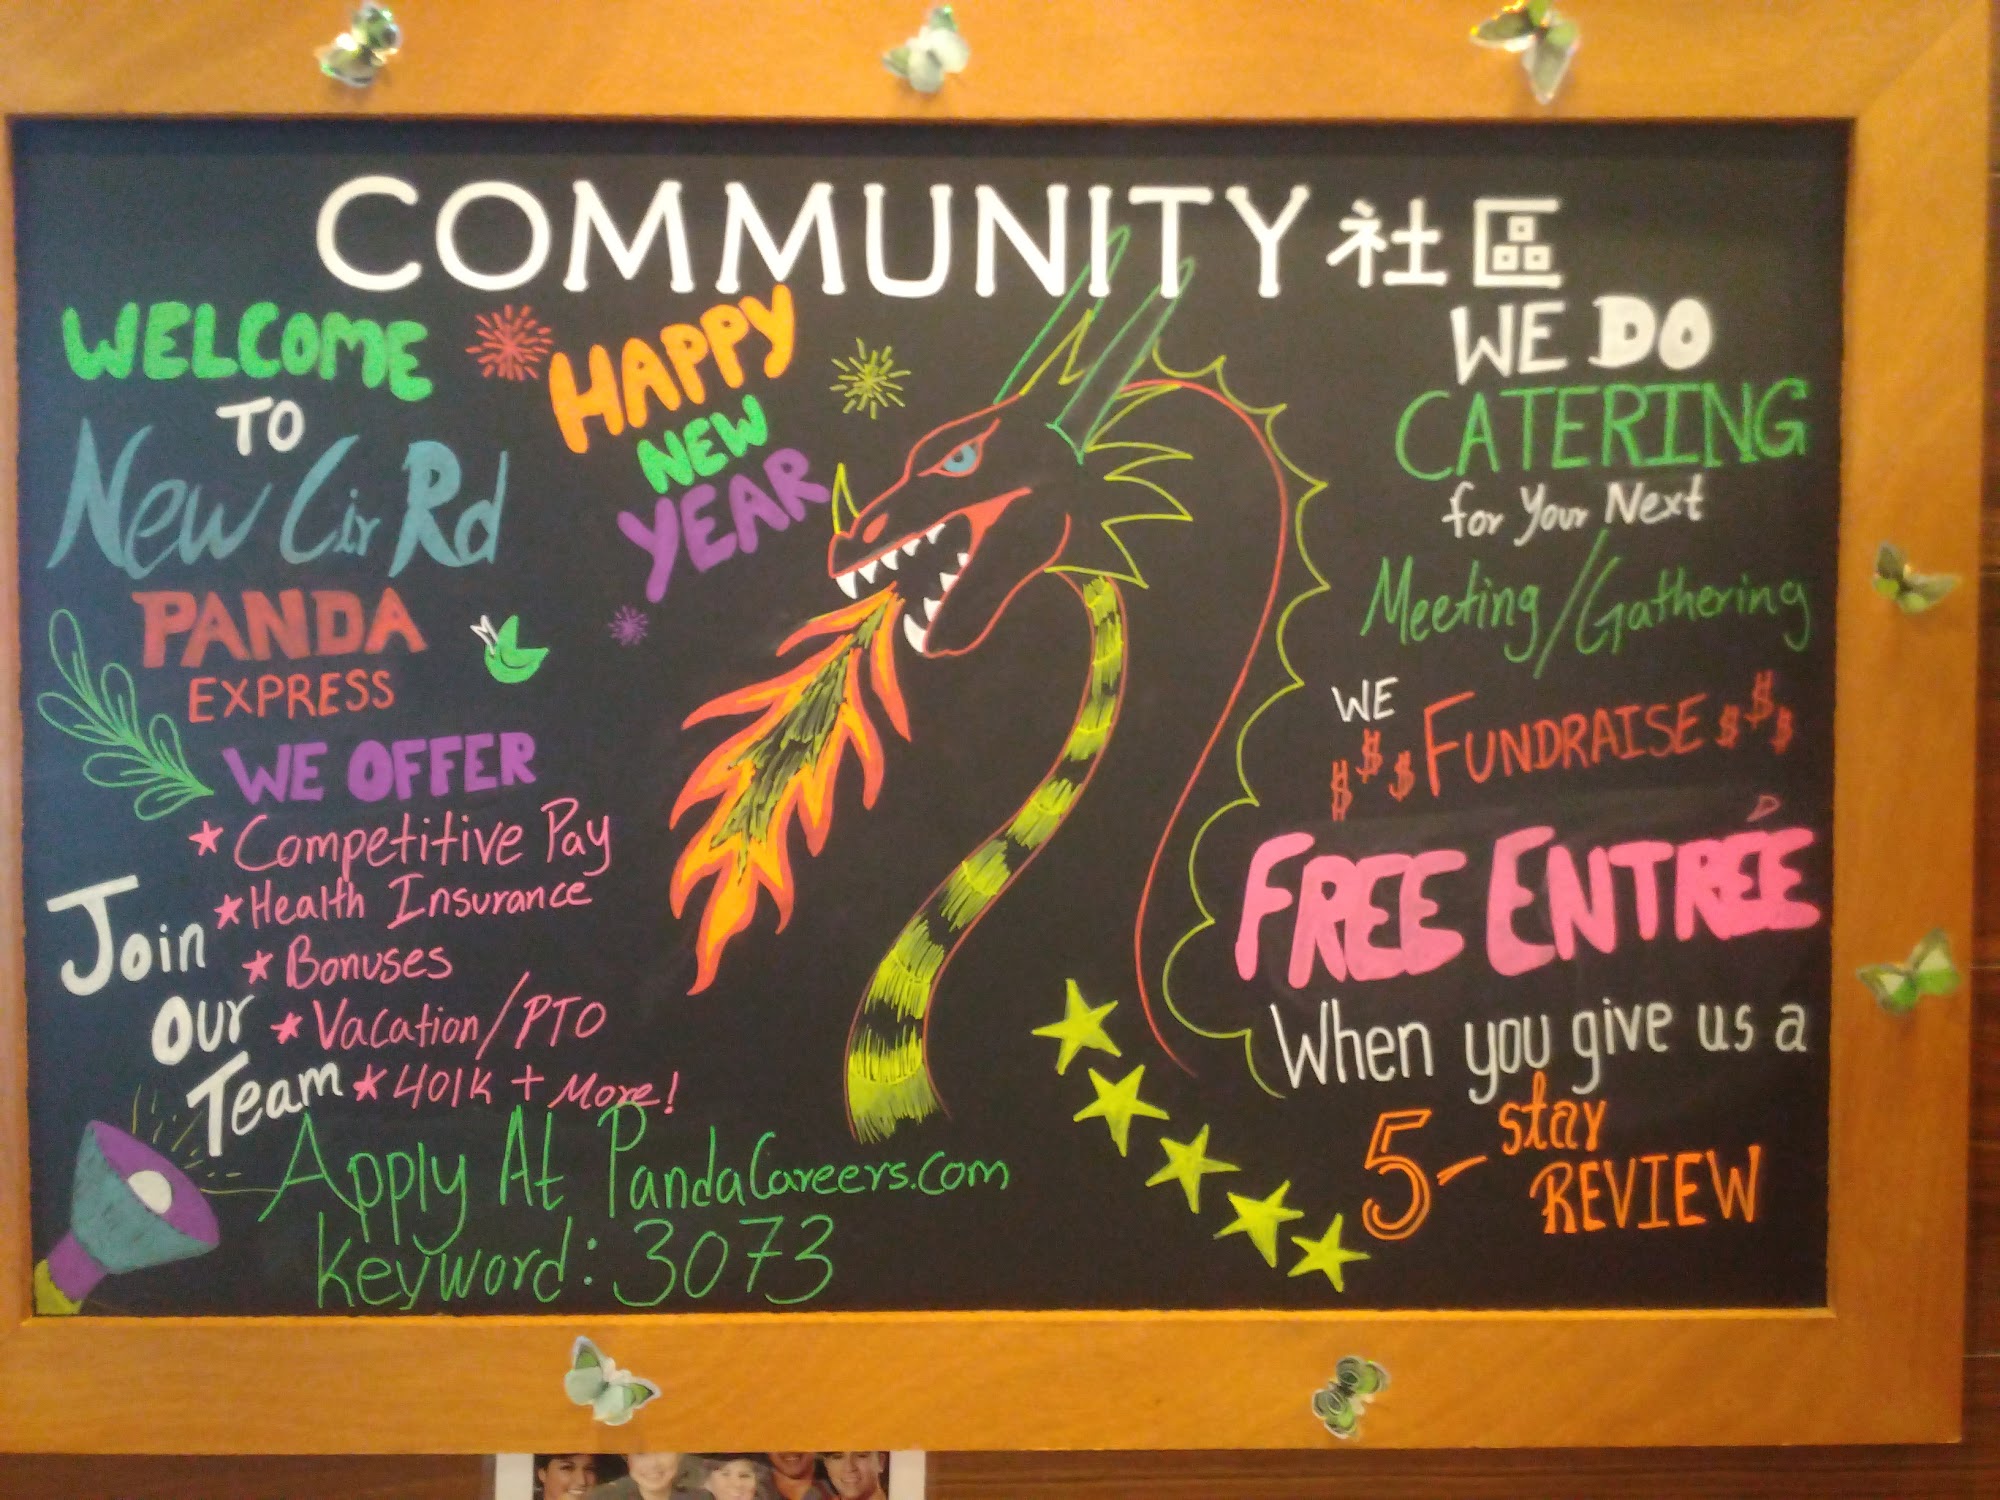 COMMUNITY 社區
WELCOME
TO
New Cir Rd
PANDA
EXPRESS
HAPPY
NEW
YEAR
WE OFFER
★ Competitive Pay
★ Health Insurance
★ Bonuses
★ Vacation/PTO
★ 401K + More!
Join
our
Team
Apply At PandaCareers.com
Keyword: 3073
WE DO
CATERING
for Your Next
Meeting/Gathering
WE
$$$ FUNDRAISE $$$
FREE ENTRÉE
When you give us a
5-star
REVIEW